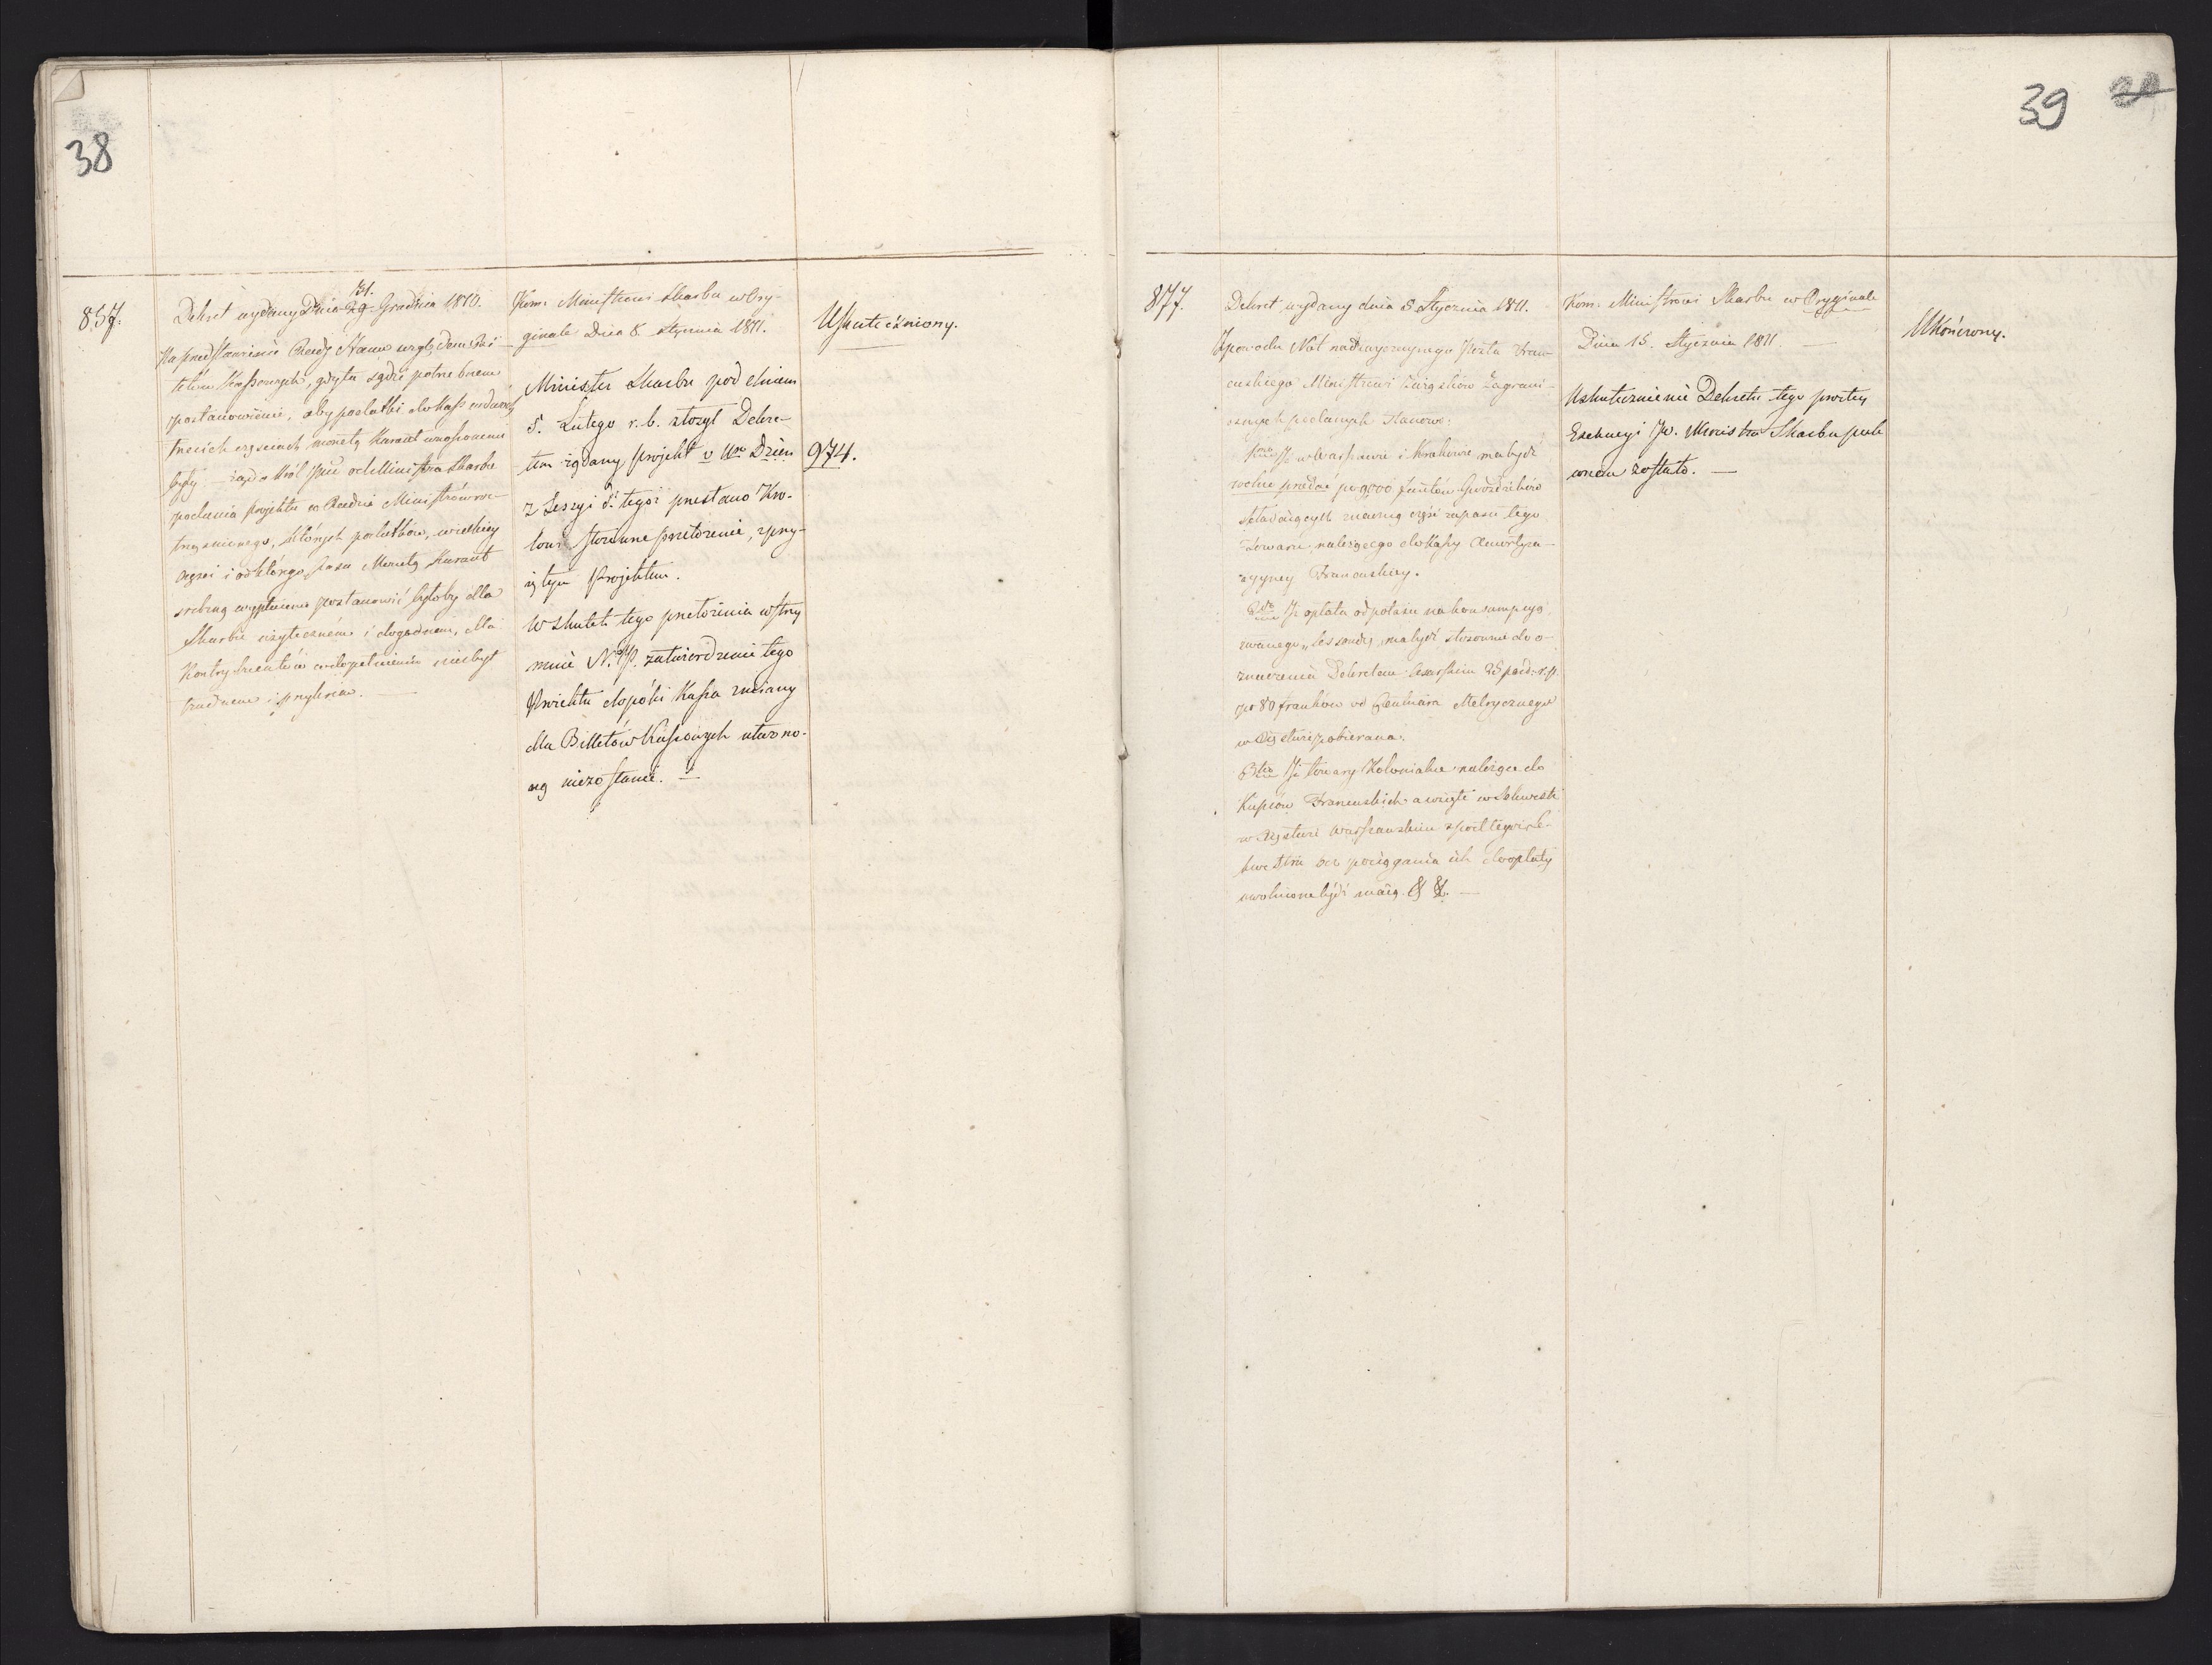 38
857.
Dekret wydany Dnia 29 31. Grudnia 1810.
Na przedstawienie Rady Stanu wzglę̨dem Bil-
letów Kassowych, gdyta sądzi potrzebném
postanowienie, aby podatki do Kass w dwóch
trzecich częściach monetą Kurant wnoszonemi
były — żąda Król Jmć od Ministra Skarbu
podania projektu w Radzie Ministrów roz-
trząśnionego, których podatków, w wielkiey
części i od którego czasu Monetą Kurant
srebrną wypłacenie postanowić byłoby dla
Skarbu użyteczném i dogodnem, dla
Kontrybuentów w dopełnieniu niezbyt
trudnem i przykrem. —
Kom: Ministrowi Skarbu w Ory-
ginale Dnia 8. Stycznia 1811.
Minister Skarbu pod dniem
5. Lutego r. b. złożył Dekre-
tem żądany projekt v Nro Dzien
z Sessyi d. tegoż przesłano Kró-
lowi stosowne przełożenie, z przy-
iętym Projektem.
W skutek tego przełożenia wstrzy
muie N. P. zatwierdzenie tego
Proiektu dopóki Kassa zmiany
dla Billetów Kassowych utworzo-
ną niezostanie. —
Uskuteczniony.
974.
39
877.
Dekret wydany dnia 5 Stycznia 1811.
Z powodu Not nadzwyczaynego Posła Fran-
cuskiego Ministrowi Związków Zagrani-
cznych podanych Stanowi:
1mo Iż w Warszawie i Krakowie ma bydź
wolno przedać po 9,000 funtów Gwoździków
składaiących znaczną część zapasu tego
Towaru, należącego do Kassy Amortyza-
cyyney Francuskiey.
2do Iż opłata od potażu na konsumpcyą
zwanego „les soude„ ma bydź stosownie do o-
znaczenia Dekretem Cesarskim 25 paźd: r. p.
po 80 franków od Centnara Metrycznego
w Xięstwie pobierana.
3tio Iż towary Kolonialne należące do
Kupców Francuskich a wzięte w Sekwestr
w Xięstwie Warszawskim z pod tegoż Se-
kwestru bez pociągania ich do opłaty
uwolnione bydź maią. & &. —
Kom: Ministrowi Skarbu w Oryginale
Dnia 15. Stycznia 1811. —
Uskutecznienie Dekretu tego prostey
Exekucyi JW. Ministra Skarbu pole
conem zostało. —
Ukończony.